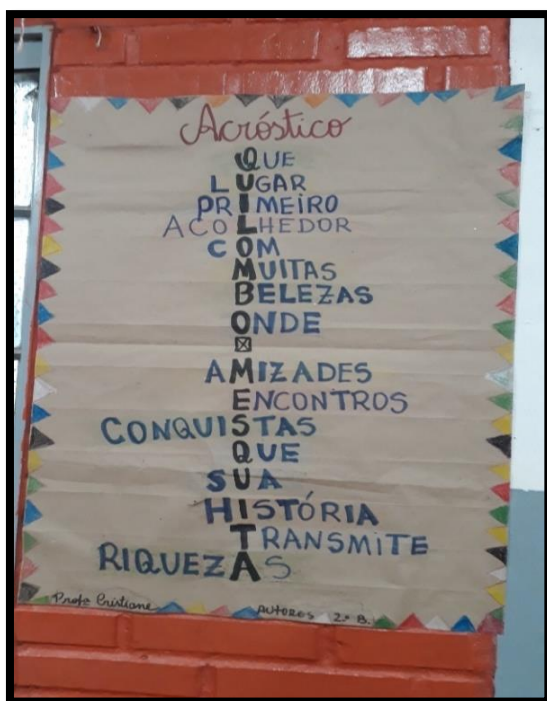 Acróstico
QUE
LUGAR
PRIMEIRO
ACOLHEDOR
COM
MUITAS
BELEZAS
ONDE
AMIZADES
ENCONTROS
CONQUISTAS
QUE
SUA
HISTÓRIA
TRANSMITE
RIQUEZAS
Profe Cristiane
AUTORES 2º B.